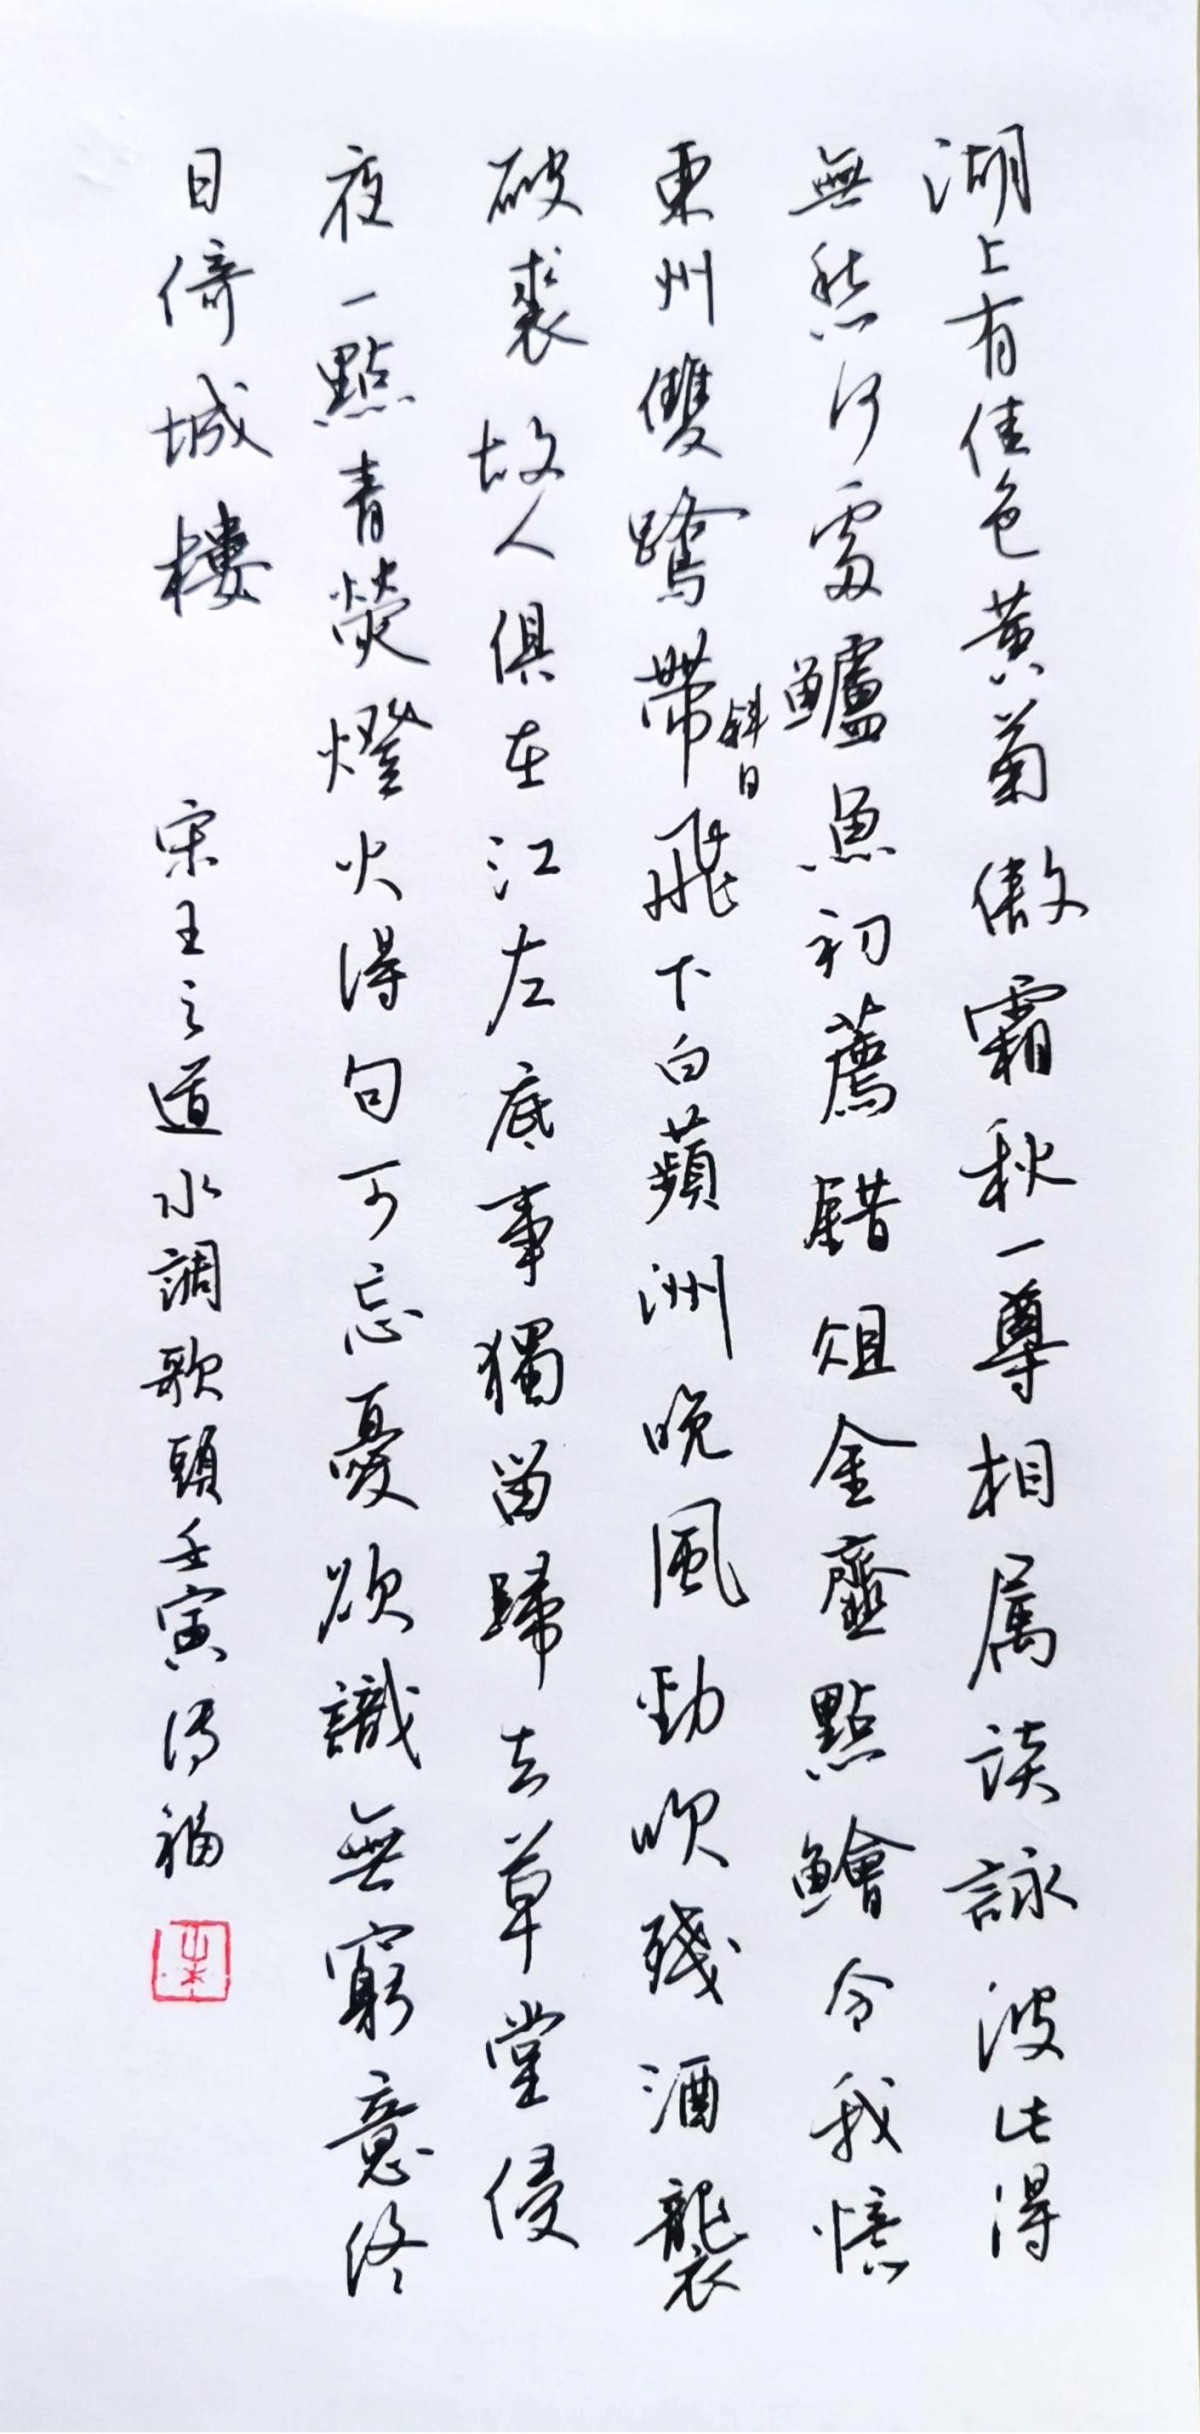 湖上有佳色黄菊傲霜秋一尊相属談詠波此得
無愁何處鱸魚初薦錯俎金虀點鱠令我憶
東州雙鷺帶斜日飛下白蘋洲晚風勁吹殘酒襲
破裘故人俱在江左底事獨留歸去草堂侵
夜一點青熒燈火得句可忘憂欲識無窮意終
日倚城樓
宋王之道水調歌頭壬寅得福